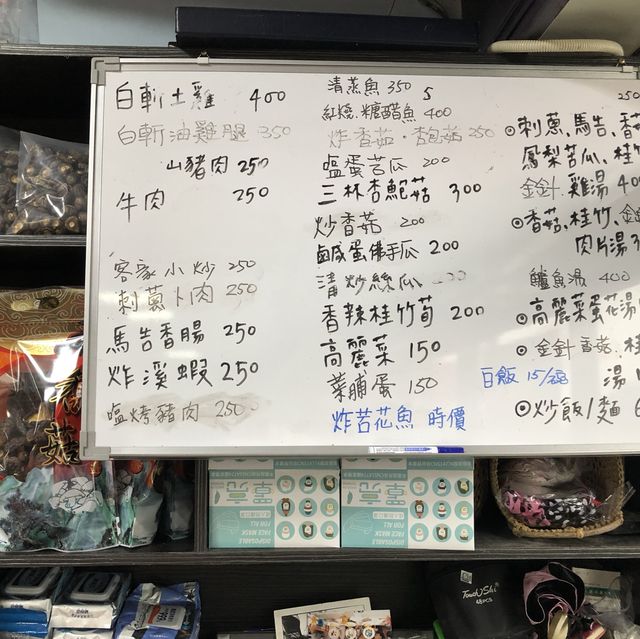 白斬土雞 400
白斬油雞腿 350
山豬肉 250
牛肉 250
客家小炒 250
刺蔥卜肉 250
馬告香腸 250
炸溪蝦 250
塩烤豬肉 250
清蒸魚 350
紅燒.糖醋魚 400
炸香菇.杏鮑菇 250
塩蛋苦瓜 200
三杯杏鮑菇 300
炒香菇 200
鹹蛋佛手瓜 200
清炒絲瓜
香辣桂竹筍 200
高麗菜 150
菜脯蛋 150
炸苦花魚 時價
250
刺蔥、馬告、香
鳳梨苦瓜、桂竹
金針.雞湯 400
香菇、桂竹、金
肉片湯 3
鱸魚湯 400
高麗菜蛋花湯
金針香菇.桂
湯
白飯 15/碗
炒飯/麵
DISPOSABLE
FACE MASK
FOR ALL
DISPOSABLE
FACE MASK
FOR ALL